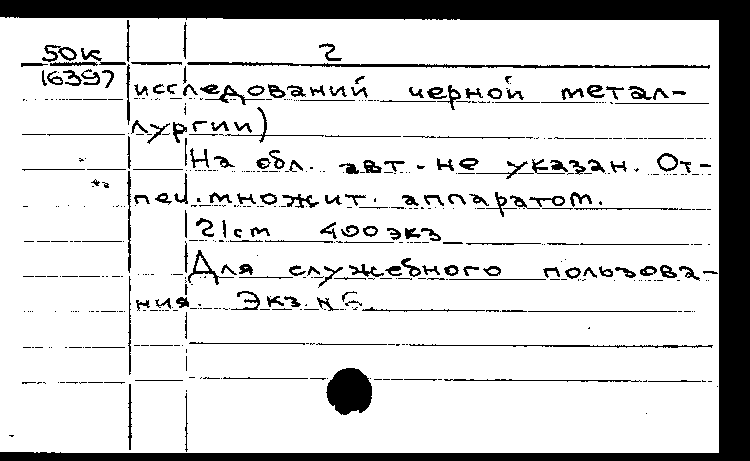 50К 2
16397
исследований черной метал-
лургии)
На обл. авт. не указан. От-
печ. множит. аппаратом.
21 cm 400 экз
Для служебного пользова-
ния. Экз. N 6.